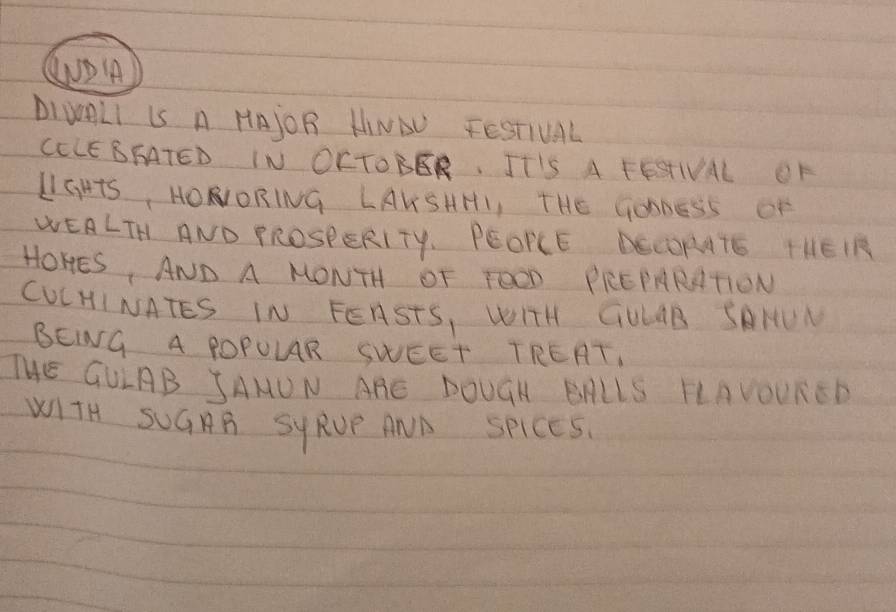 INDIA
DIWALI IS A MAJOR HINDU FESTIVAL
CELEBRATED IN OCTOBER. IT'S A FESTIVAL OF
LIGHTS, HONORING LAKSHMI, THE GODDESS OF
WEALTH AND PROSPERITY. PEOPLE DECORATE THEIR
HOMES, AND A MONTH OF FOOD PREPARATION
CULMINATES IN FEASTS, WITH GULAB JAMUN
BEING A POPULAR SWEET TREAT.
THE GULAB JAMUN ARE DOUGH BALLS FLAVOURED
WITH SUGAR SYRUP AND SPICES.